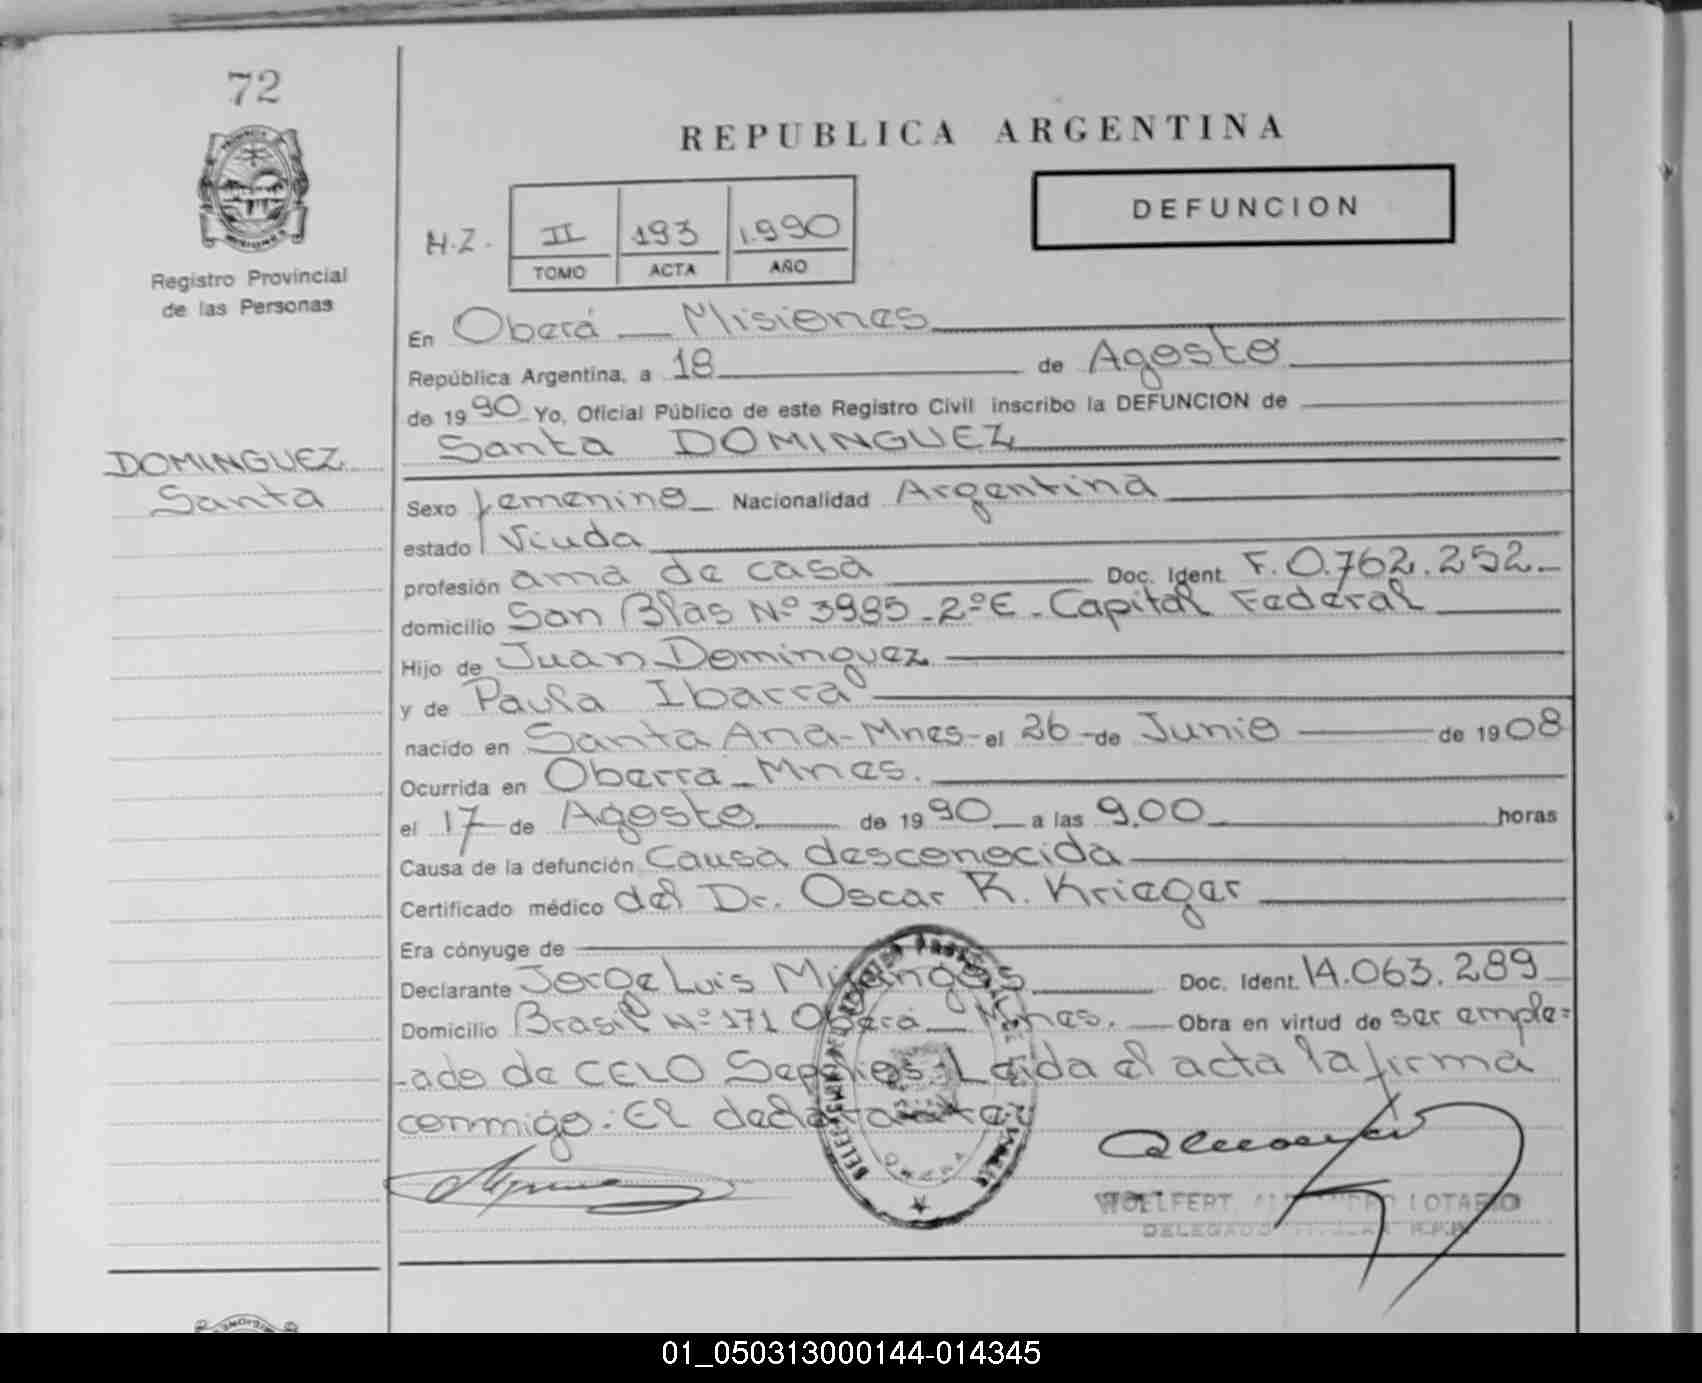 72
REPUBLICA ARGENTINA
DEFUNCION
N.Z. II 193 1.990
TOMO ACTA AÑO
Registro Provincial
de las Personas
En Oberá — Misiones
República Argentina, a 18 de Agosto
de 1990 Yo, Oficial Público de este Registro Civil inscribo la DEFUNCION de
Santa DOMINGUEZ
DOMINGUEZ
Santa
Sexo femenino Nacionalidad Argentina
estado Viuda
profesión ama de casa Doc. Ident. F. 0.762.252.
domicilio San Blas Nº 3985 - 2º E - Capital Federal
Hijo de Juan Dominguez
y de Paula Ibarra
nacido en Santa Ana - Mnes - el 26 de Junio de 1908
Ocurrida en Oberra - Mnes.
el 17 de Agosto de 1990 a las 9,00 horas
Causa de la defunción Causa desconocida
Certificado médico del Dr. Oscar R. Krieger
Era cónyuge de
Declarante Jorge Luis Doc. Ident. 14.063.289
Domicilio Brasil Nº 171 Oberá — Mnes. Obra en virtud de ser emple=
-ado de CELO Sepelios. Leida el acta la firma
conmigo: El declarante.
WOELFERT, LOTARIO
DELEGADO TITULAR R.P.P.
01_050313000144-014345